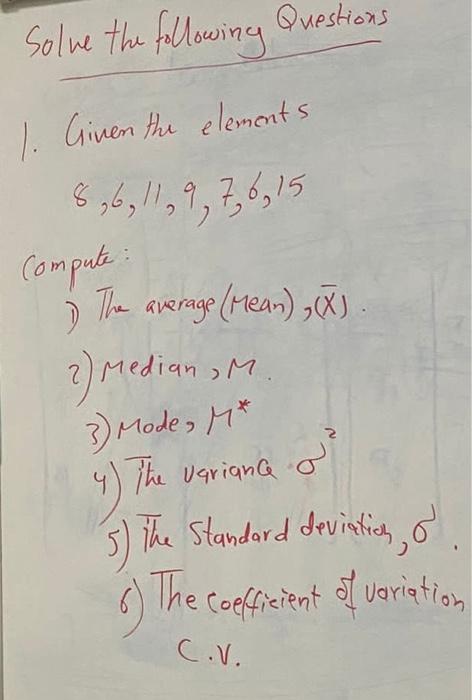 Solve the following Questions
1. Given the elements
8, 6, 11, 9, 7, 6, 15
Compute:
1) The average (Mean), (X̄).
2) Median, M.
3) Mode, M*
4) The variance σ²
5) The Standard deviation, σ.
6) The coefficient of variation
C.V.